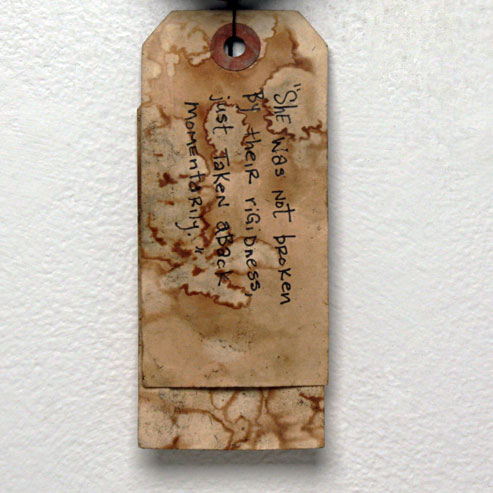 "She was not broken
By their rigidness,
just Taken aback
momentarily."